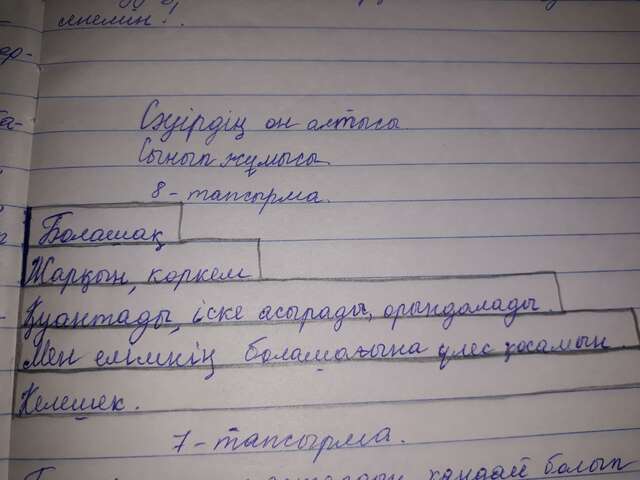 Сәуірдің он алтысы
Сынып жұмысы
8-тапсырма.
Болашақ
Жарқын, көркем
Қуантады, іске асырады, орындалады
Мен елімнің болашағына үлес қосамын.
Келешек.
7-тапсырма.
қандай болып